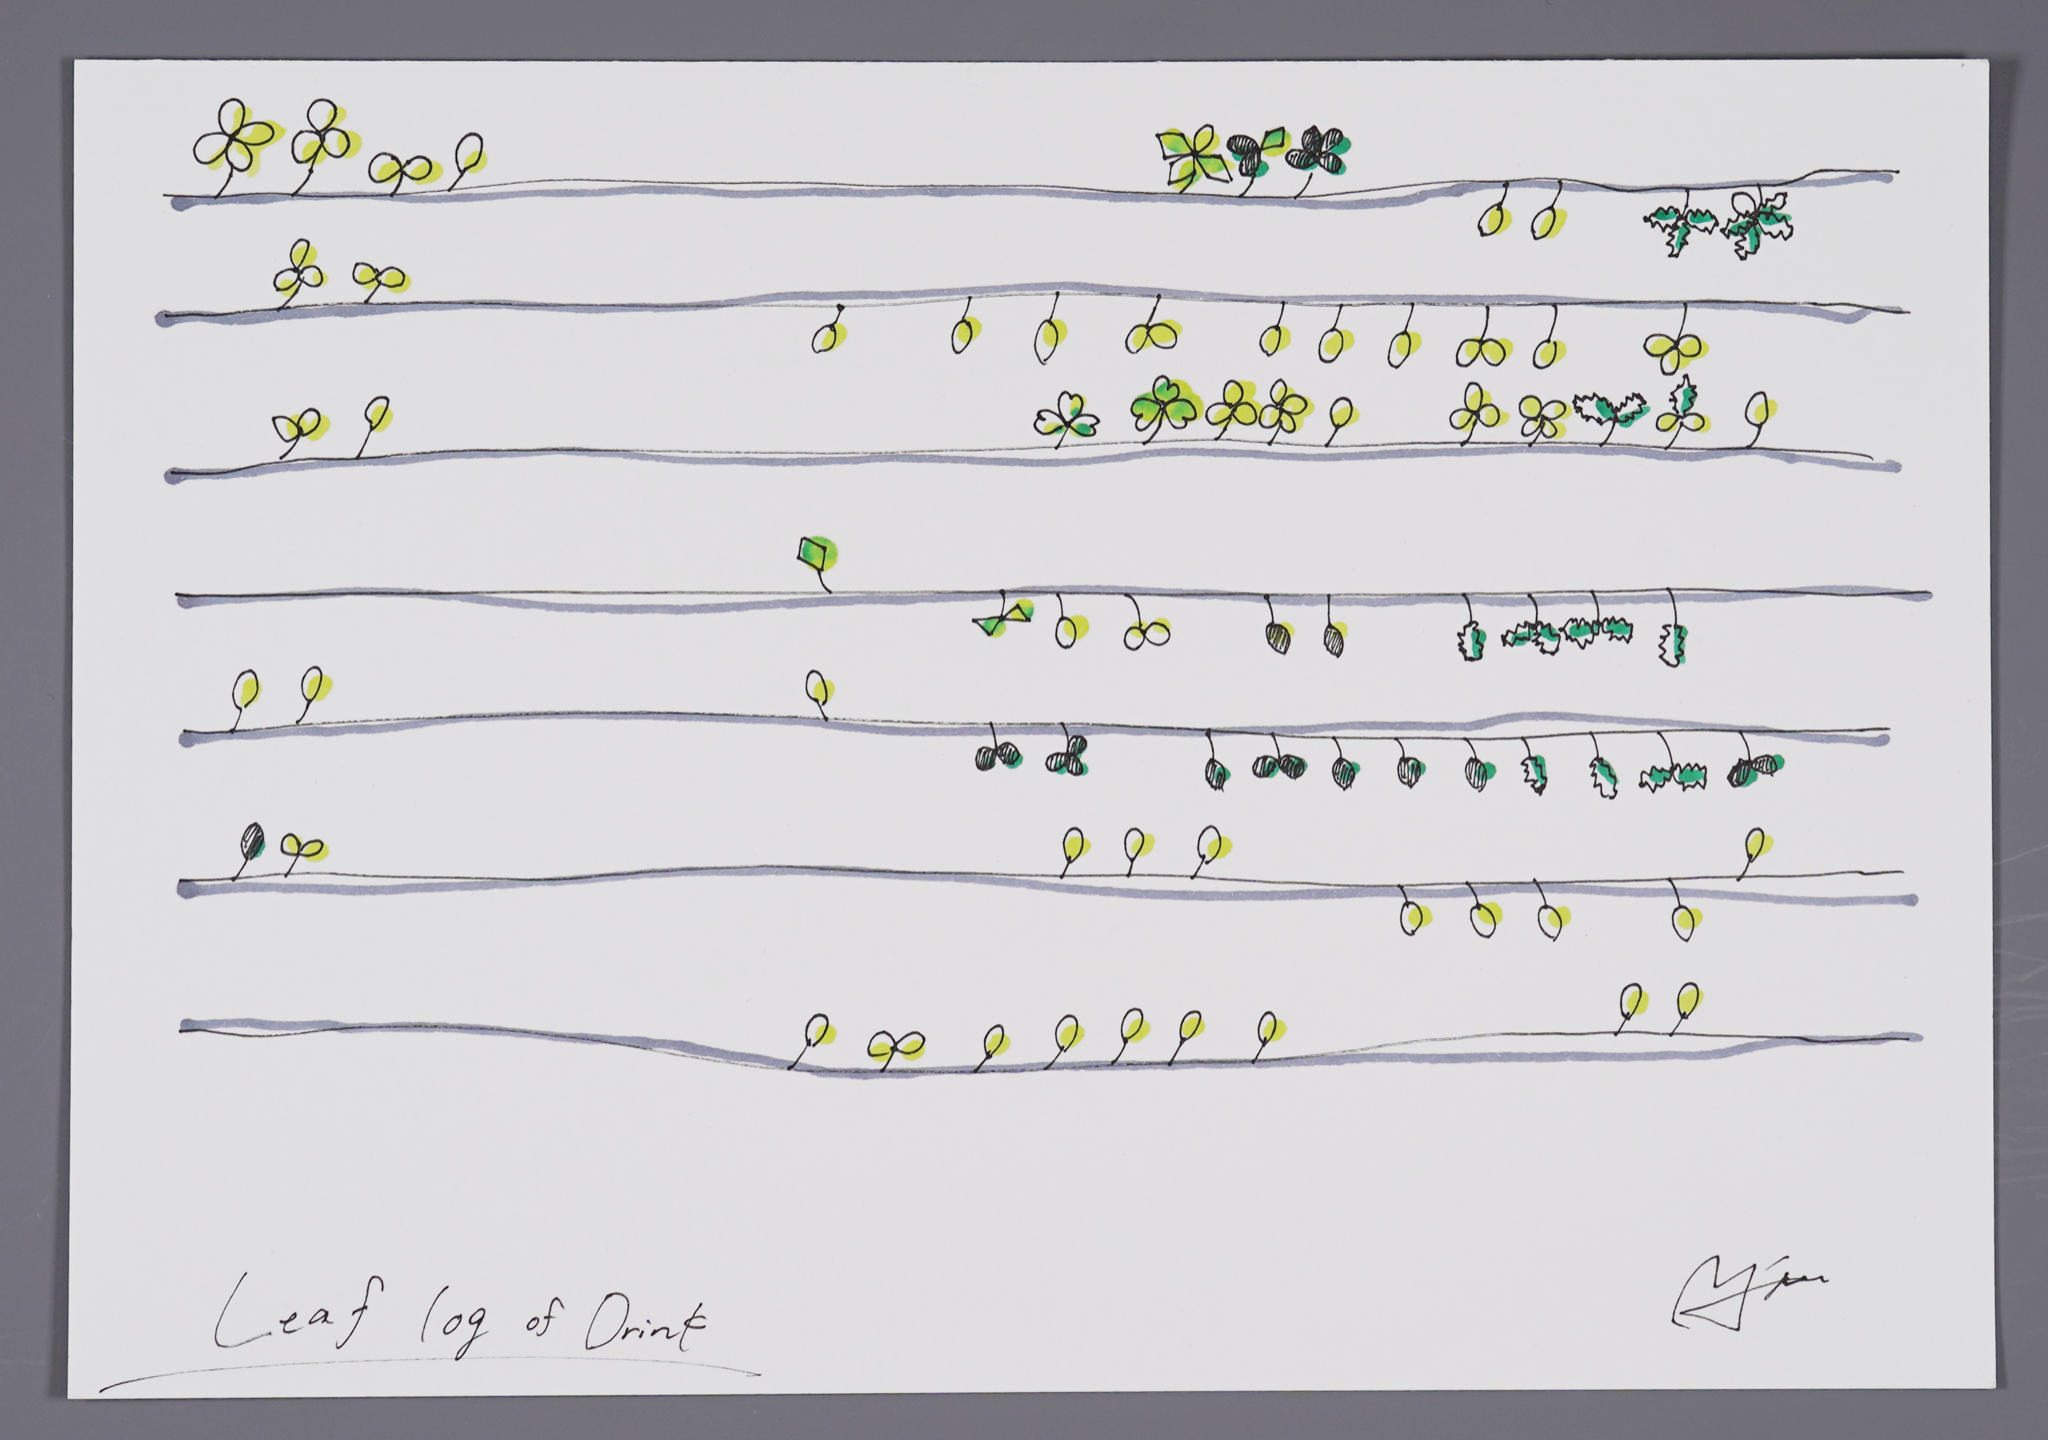 Leaf log of Drink